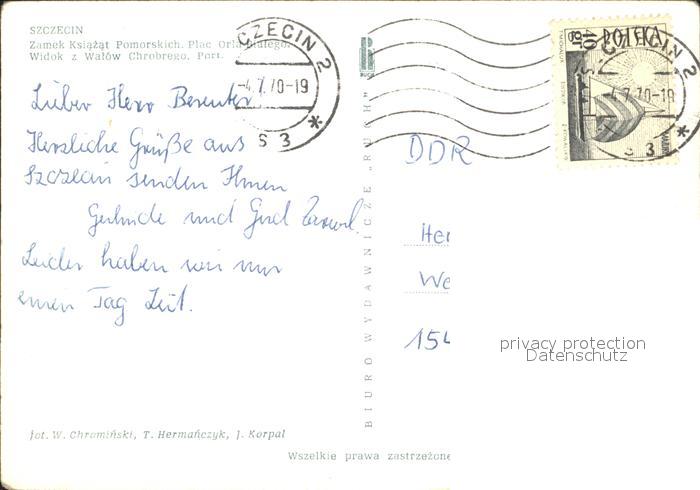 SZCZECIN
Zamek Książąt Pomorskich. Plac Orła Białego.
Widok z Wałów Chrobrego. Port.
Lieber Herr
Herzliche Grüße aus
Szczecin senden Ihnen
und Gerd
Leider haben wir nur
einen Tag Zeit.
fot. W. Chromiński, T. Hermańczyk, J. Korpal
Wszelkie prawa zastrzeżone
BIURO WYDAWNICZE „RUCH"
CZECIN 2
-4.7.70-19
S 3
POLSKA
40 gr
CZECIN 2
-4.7.70-19
s 3
DDR
Her
We
154
privacy protection
Datenschutz